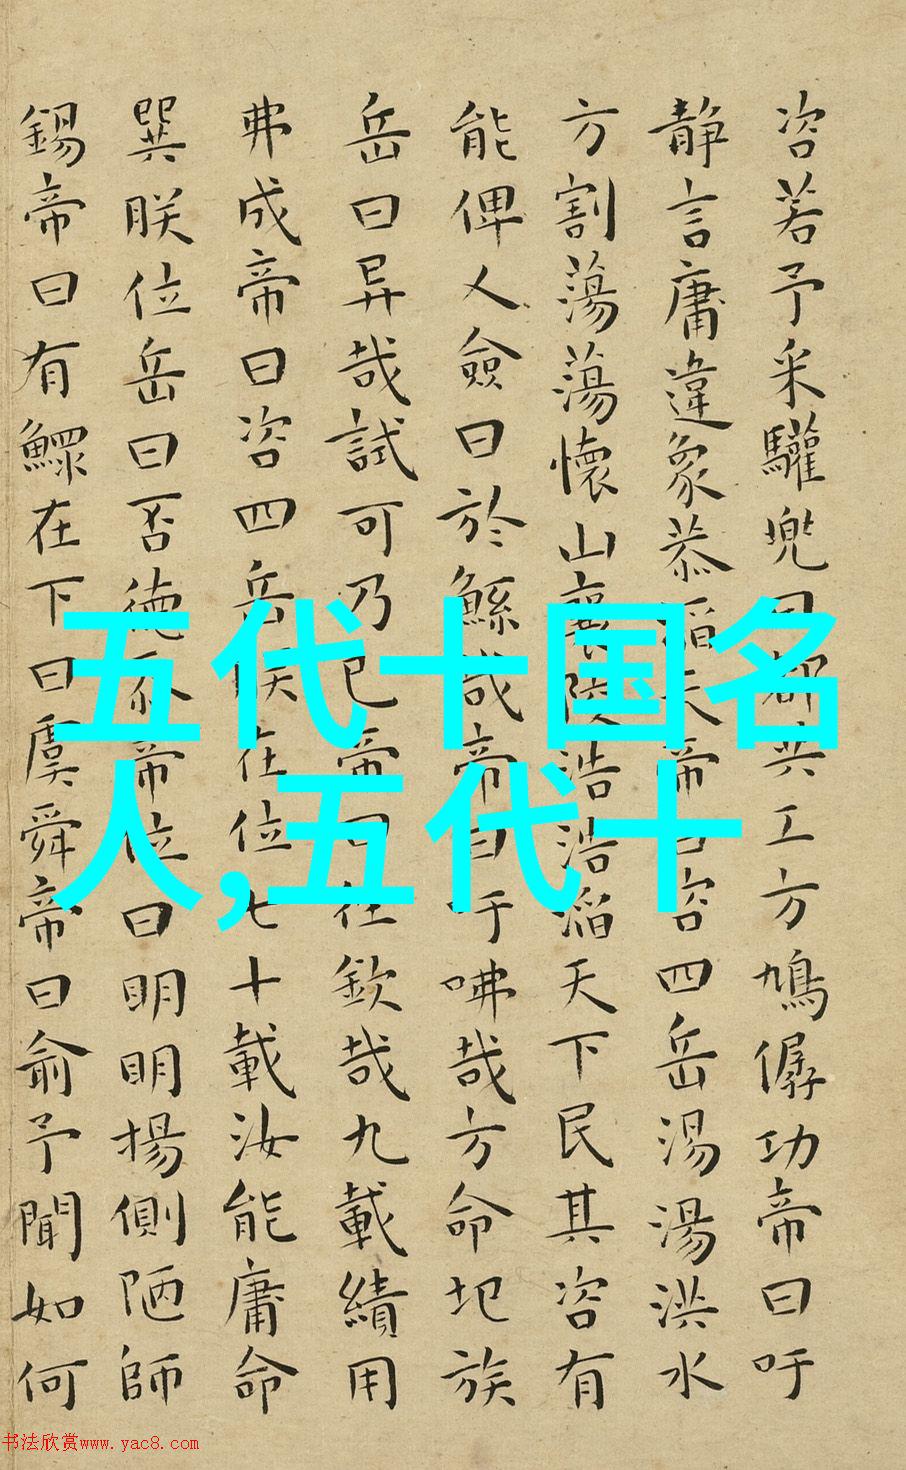 咨若予采驩兜曰都共工方鳩僝功帝曰吁
静言庸違象恭滔天帝曰咨四岳湯湯洪水
方割蕩蕩懷山襄陵浩浩滔天下民其咨有
能俾乂僉曰於鯀哉帝曰吁咈哉方命圮族
岳曰异哉試可乃已帝曰往欽哉九載績用
弗成帝曰咨四岳朕在位七十載汝能庸命
巽朕位岳曰否德忝帝位曰明明揚側陋師
錫帝曰有鰥在下曰虞舜帝曰俞予聞如何
五代十国名
人,五代十
书法欣赏www.yac8.com